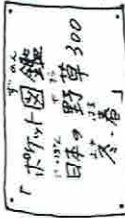 「ポケット図鑑
日本の野草300
冬・春」